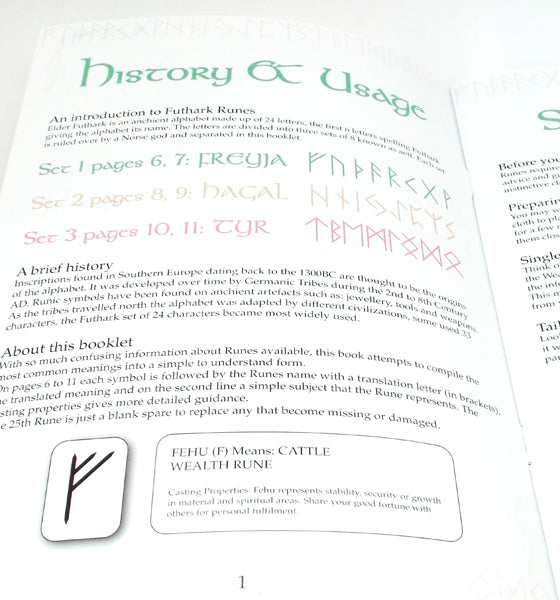 History & Usage
An introduction to Futhark Runes
Elder Futhark is an anchient alphabet made up of 24 letters, the first 6 letters spelling Futhark
giving the alphabet its name. The letters are divided into three sets of 8 known as aett. Each set
is ruled over by a Norse god and separated in this booklet.
Set 1 pages 6, 7: FREYJA ᚠ ᚢ ᚦ ᚨ ᚱ ᚲ ᚷ ᚹ
Set 2 pages 8, 9: HAGAL ᚺ ᚾ ᛁ ᛃ ᛇ ᛈ ᛉ ᛊ
Set 3 pages 10, 11: TYR ᛏ ᛒ ᛖ ᛗ ᛚ ᛜ ᛞ ᛟ
A brief history
Inscriptions found in Southern Europe dating back to the 1300BC are thought to be the origins
of the alphabet. It was developed over time by Germanic Tribes during the 2nd to 8th Century
AD. Runic symbols have been found on ancient artefacts such as: jewellery, tools and weapons.
As the tribes travelled north the alphabet was adapted by different civilizations, some used 33
characters, the Futhark set of 24 characters became most widely used.
About this booklet
With so much confusing information about Runes available, this book attempts to compile the
most common meanings into a simple to understand form.
On pages 6 to 11 each symbol is followed by the Runes name with a translation letter (in brackets),
the translated meaning and on the second line a simple subject that the Rune represents. The
casting properties gives more detailed guidance.
25th Rune is just a blank spare to replace any that become missing or damaged.
ᚠ
FEHU (F) Means: CATTLE
WEALTH RUNE
Casting Properties: Fehu represents stability, security or growth
in material and spiritual areas. Share your good fortune with
others for personal fulfilment.
1
S
Before you
Runes require
advice and
instinctive
Preparin
You may w
cloth to pla
for a few
them close
Single
Think o
the Wea
the inf
This m
from
Tail
Look
it w
par